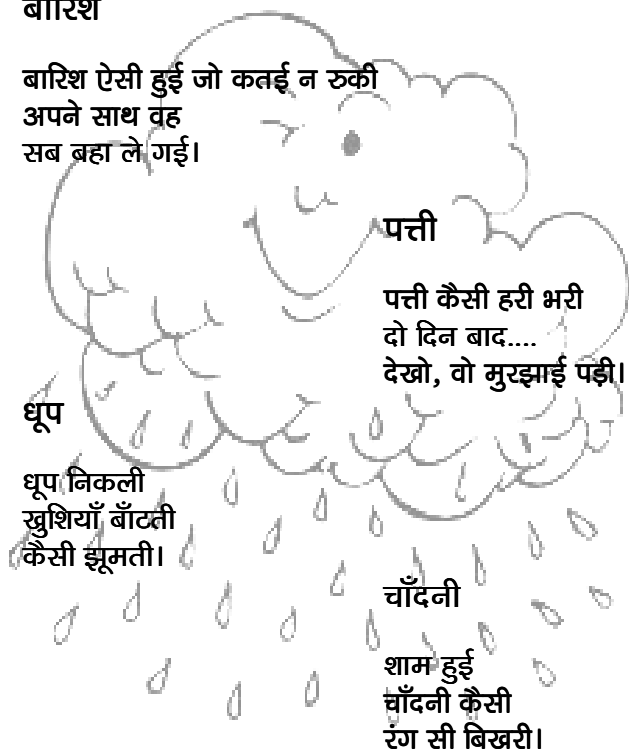 बारिश
बारिश ऐसी हुई जो कतई न रुकी
अपने साथ वह
सब बहा ले गई।
पत्ती
पत्ती कैसी हरी भरी
दो दिन बाद....
देखो, वो मुरझाई पड़ी।
धूप
धूप निकली
खुशियाँ बाँटती
कैसी झूमती।
चाँदनी
शाम हुई
चाँदनी कैसी
रंग सी बिखरी।